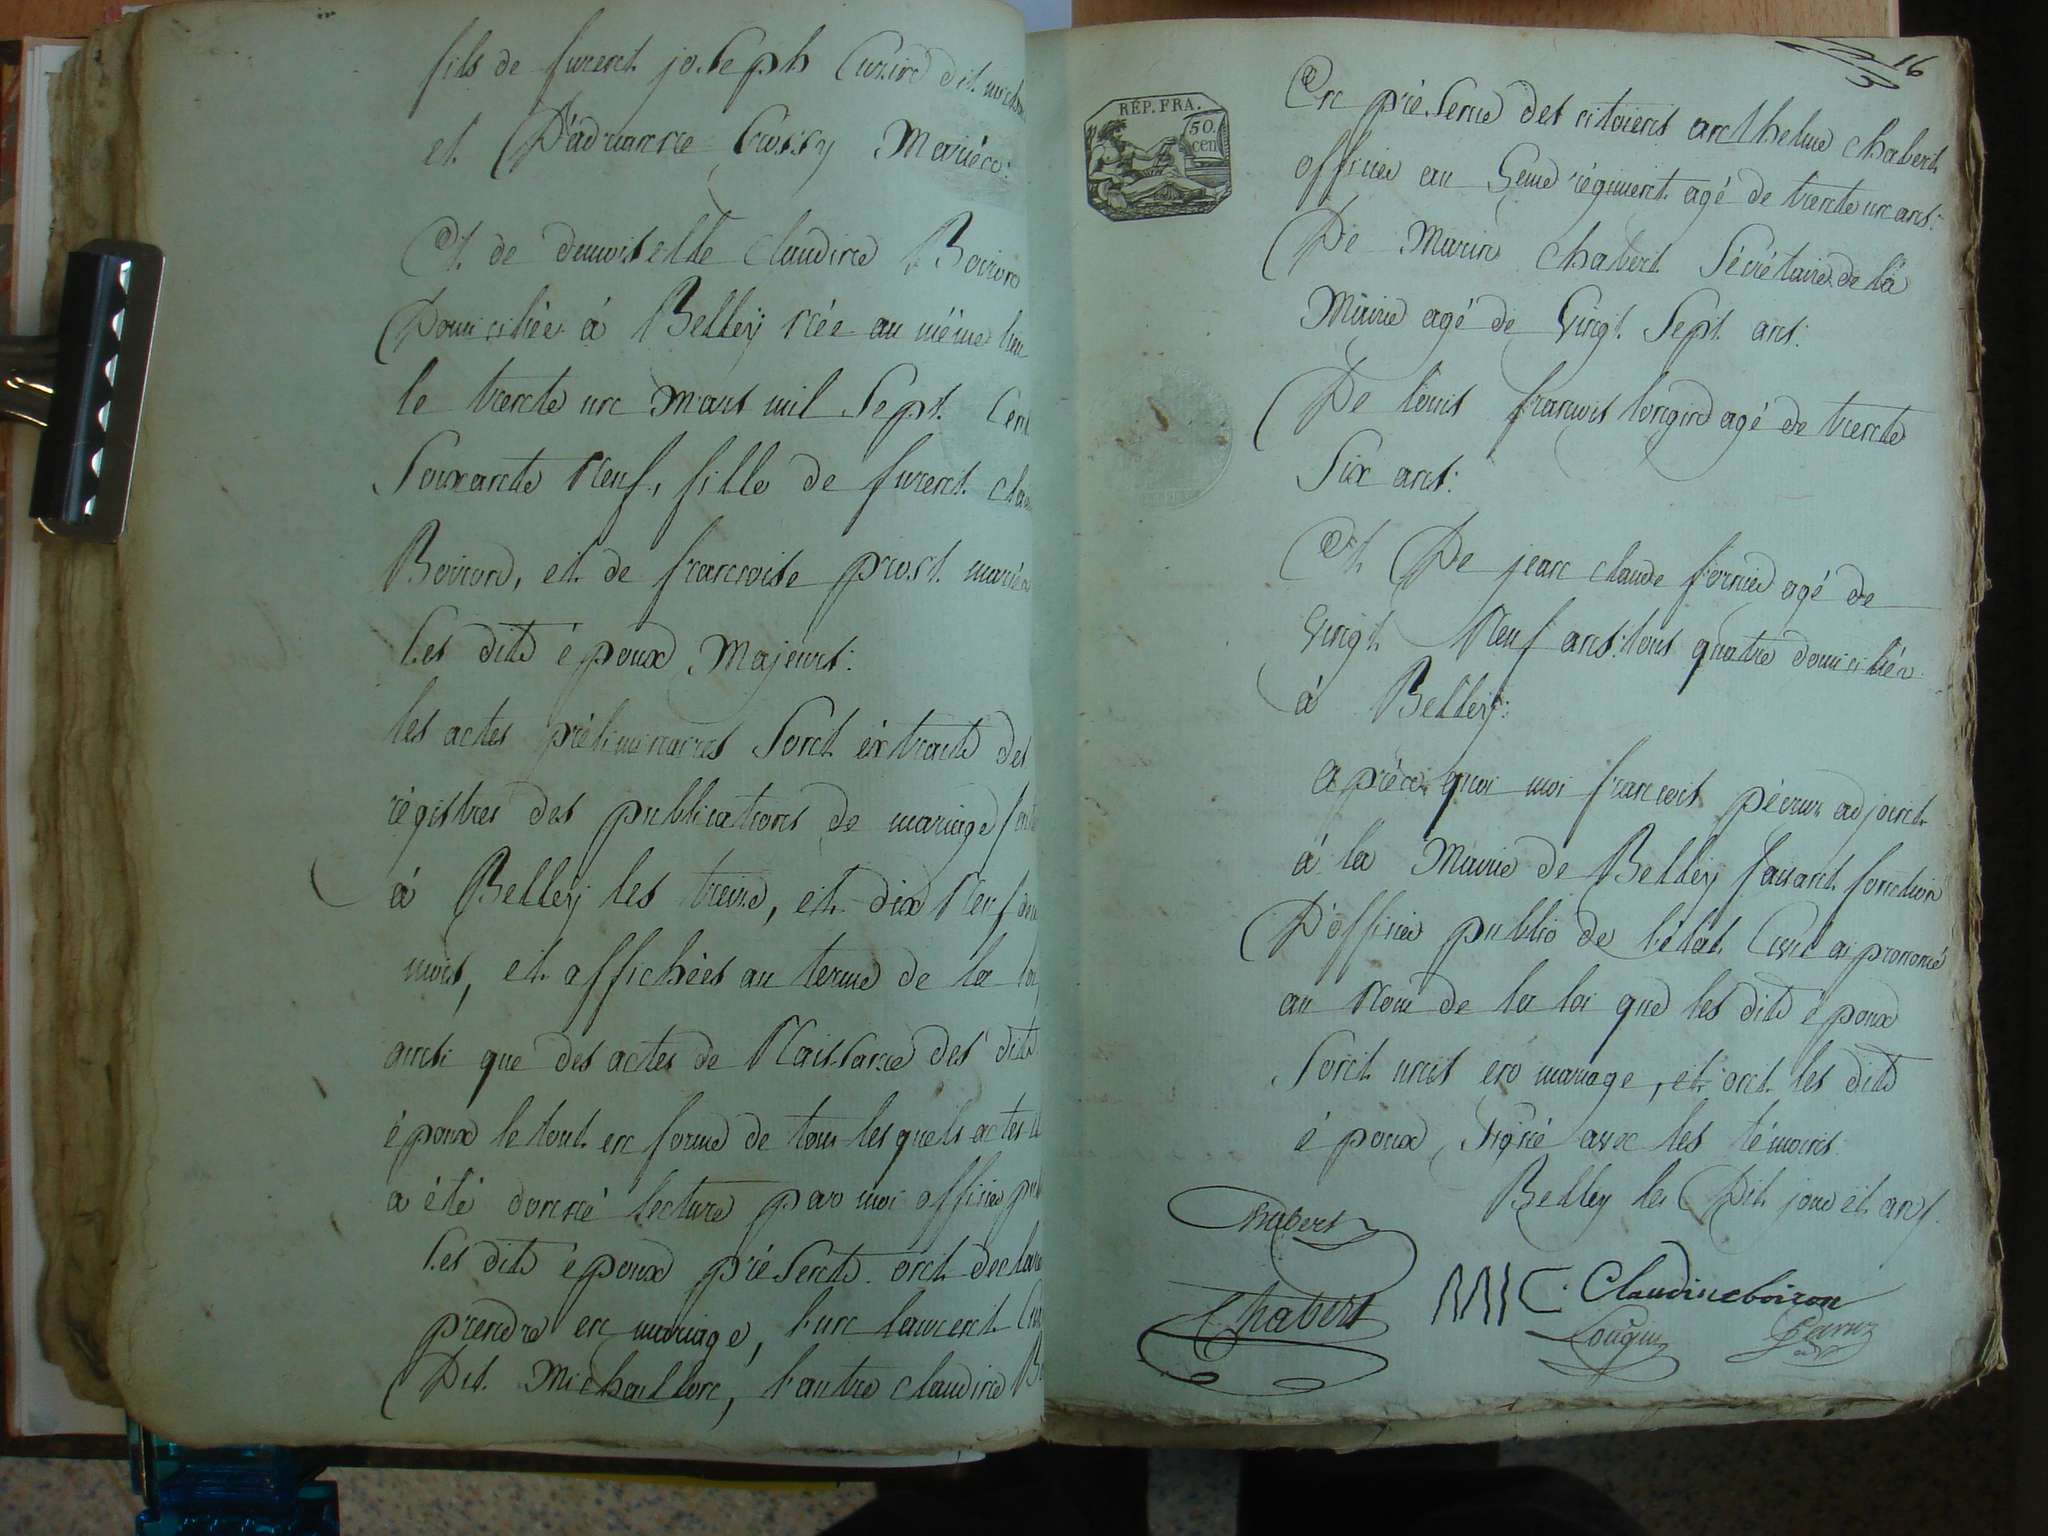 fils de furent joseph Cusin dit
et D'adrianne Crossy Mariéz:
Et de demoiselle Claudine Boiron
Domiciliée à Belley née au même lieu
le trente un mars mil Sept Cent
Soixante Neuf, fille de furent
Boiron, et de françoise prost mariéz
Les dits époux Majeurs:
les actes préliminaires Sont éxtraits des
régistres des publications de mariage
à Belley les treize, et dix Neuf
mois, et affichées au terme de la loi
ainsi que des actes de Naissance des dits
époux le tout en forme de tous les quels actes il
a été donné lecture par moi officier
Les dits époux présents ont
prendre en mariage, l'un laurent
Dit Michaillon, l'autre claudine
16
RÉP. FRA.
50.
cen
En présence des citoiens anthelme chabert
officier au 5eme régiment agé de trente un ans:
De Marin Chabert Sécrétaire de la
Mairie agé de Vingt Sept ans:
De louis françois longin agé de trente
Six ans:
Et De jean claude fornier agé de
Vingt Neuf ans: tous quatre domiciliéz
à Belley:
aprèz quoi moi françois adjoint
à la Mairie de Belley faisant fonction
D'officier public de l'état Civil ai prononcé
au Nom de la loi que les dits époux
Sont unis en mariage, et ont les dits
époux Signé avec les témoins:
Belley les Dit jour et an
Chabert
Chabert MIC. Claudine boiron
Longin